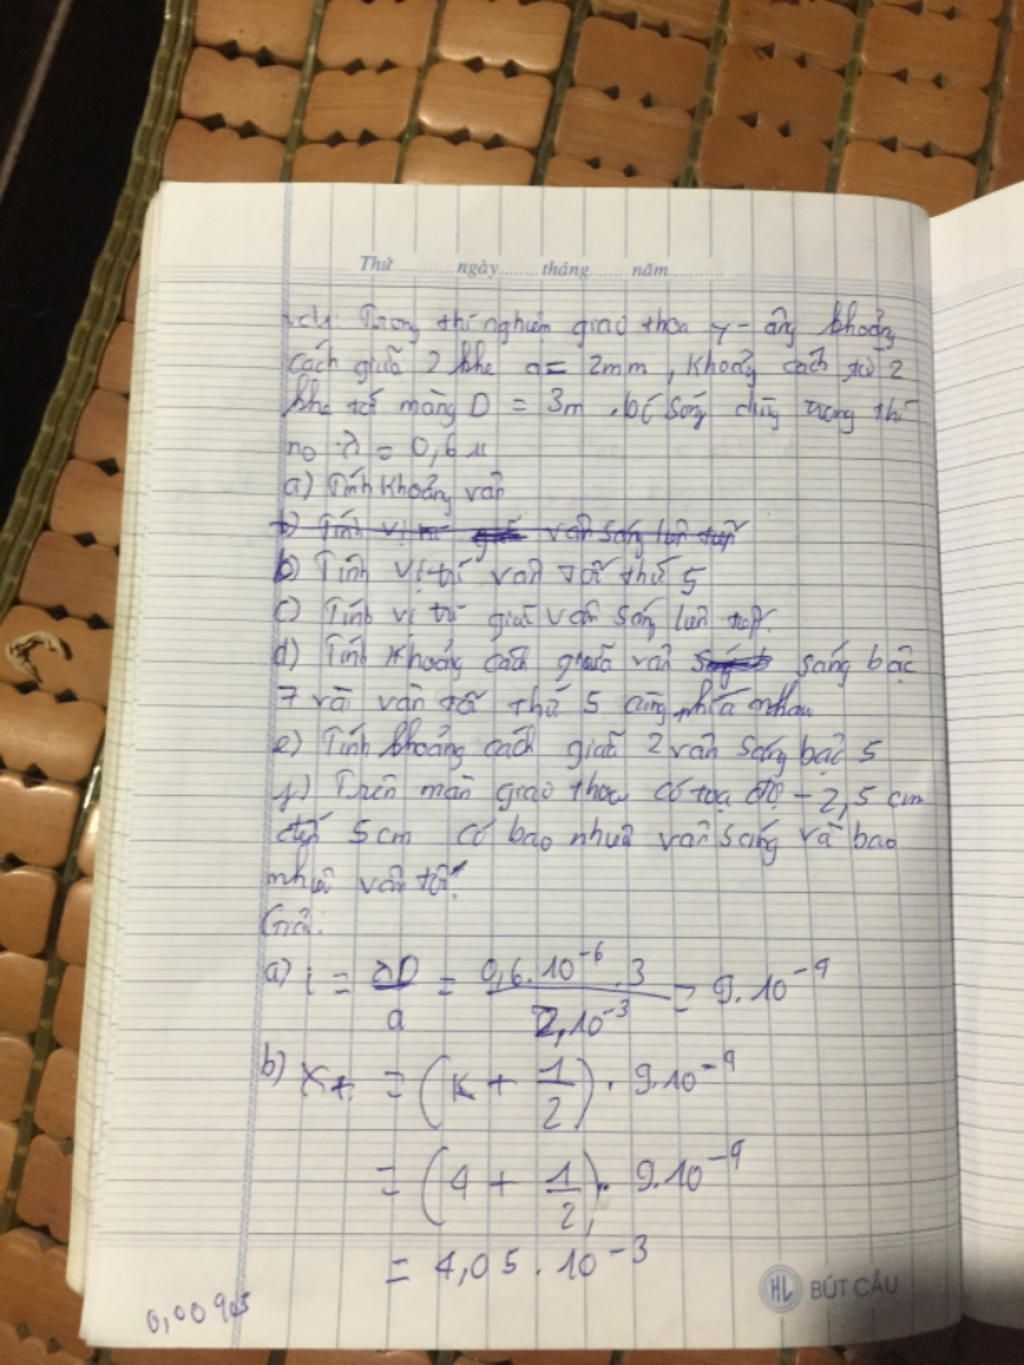 Thứ ngày tháng năm
vd4: Trong thí nghiệm giao thoa y-âng khoảng
cách giữa 2 khe a = 2mm, khoảng cách từ 2
khe tới màng D = 3m. bc sóng dùng trong thí
no λ = 0,6 μ
a) Tính khoảng vân
b) Tính vị trí vân sáng liên tiếp
b) Tính vị trí vân tối thứ 5
c) Tính vị trí giữa vân sáng liên tiếp.
d) Tính khoảng cách giữa vân sáng bậc
7 và vân tối thứ 5 cùng phía nhau
e) Tính khoảng cách giữa 2 vân sáng bậc 5
f) Trên màn giao thoa có toạ độ -2,5 cm
đến 5cm có bao nhiêu vân sáng và bao
nhiêu vân tối.
Giải:
a) i = λD/a = 0,6.10^-6.3/2,10^-3 = 9.10^-4
b) xt = (k + 1/2). 9.10^-4
= (4 + 1/2). 9.10^-4
= 4,05.10^-3
0,00405
HL BÚT CẦU